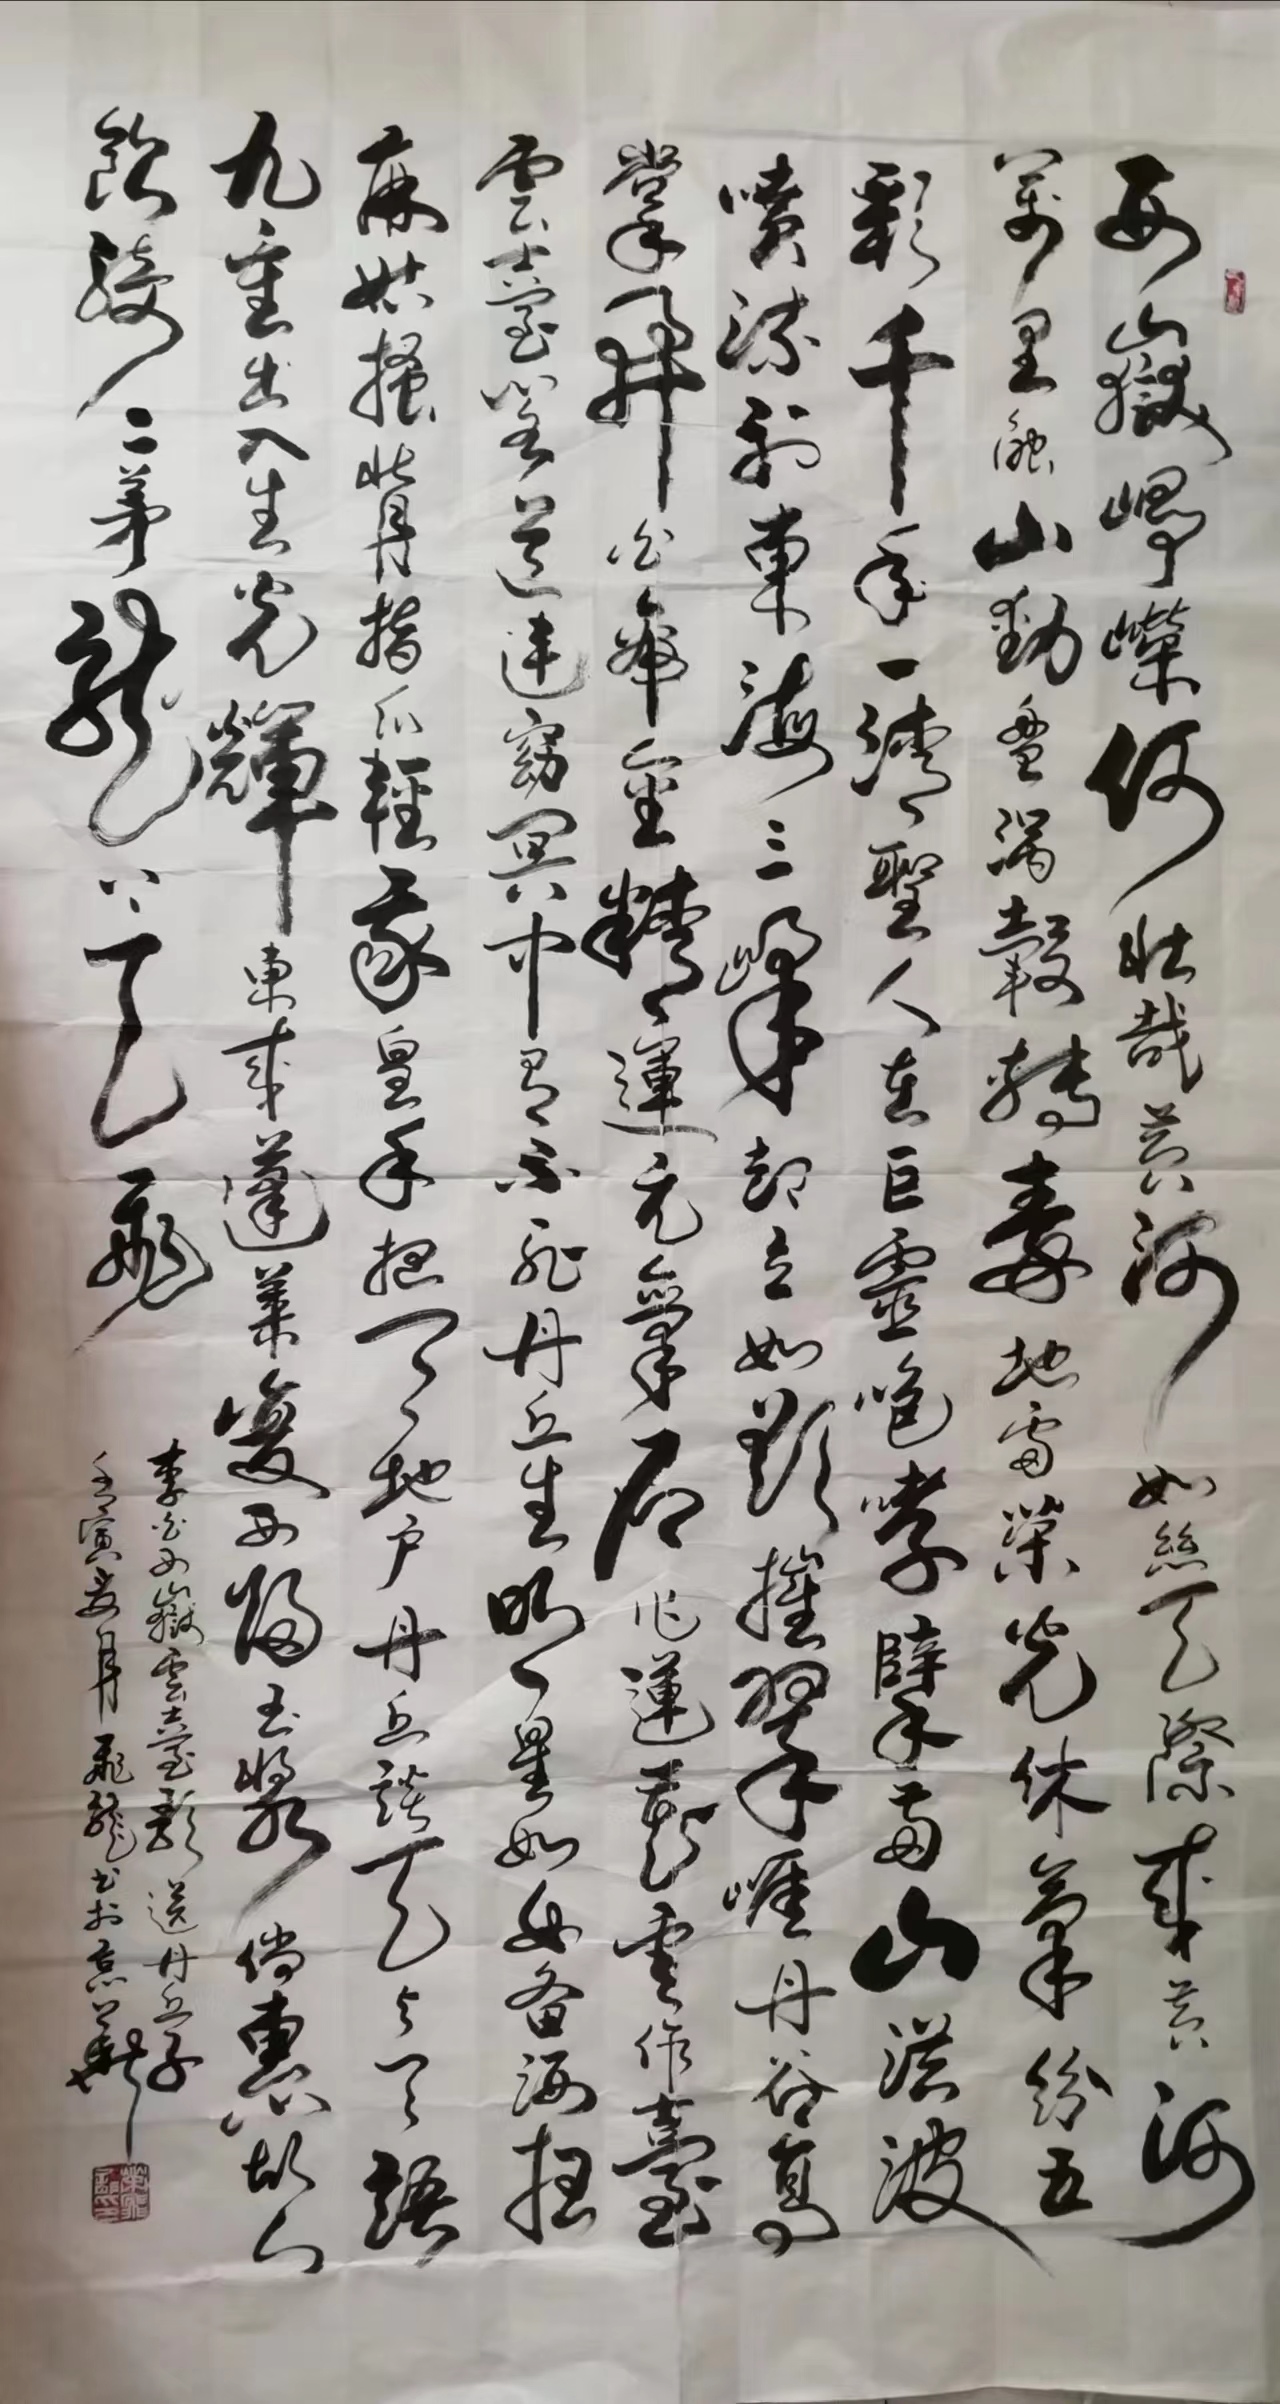 西嶽崢嶸何壯哉黃河如絲天際來黃河
萬里觸山動盤渦轂轉秦地雷榮光休氣紛五
彩千年一清聖人在巨靈咆哮擘兩山洪波
噴流射東海三峰卻立如欲摧翠崖丹谷高
掌開白帝金精運元氣石作蓮花雲作臺
雲臺閣道連窈冥中有不死丹丘生明星如女备洒掃
麻姑搔背指爪輕我皇手把天地户丹丘談天與天語
九重出入生光輝東來蓬萊復西歸玉漿倘惠故人
飲騎二茅龍上天飛
李白西嶽雲臺歌送丹丘子
壬寅夏月飛龍书於京華